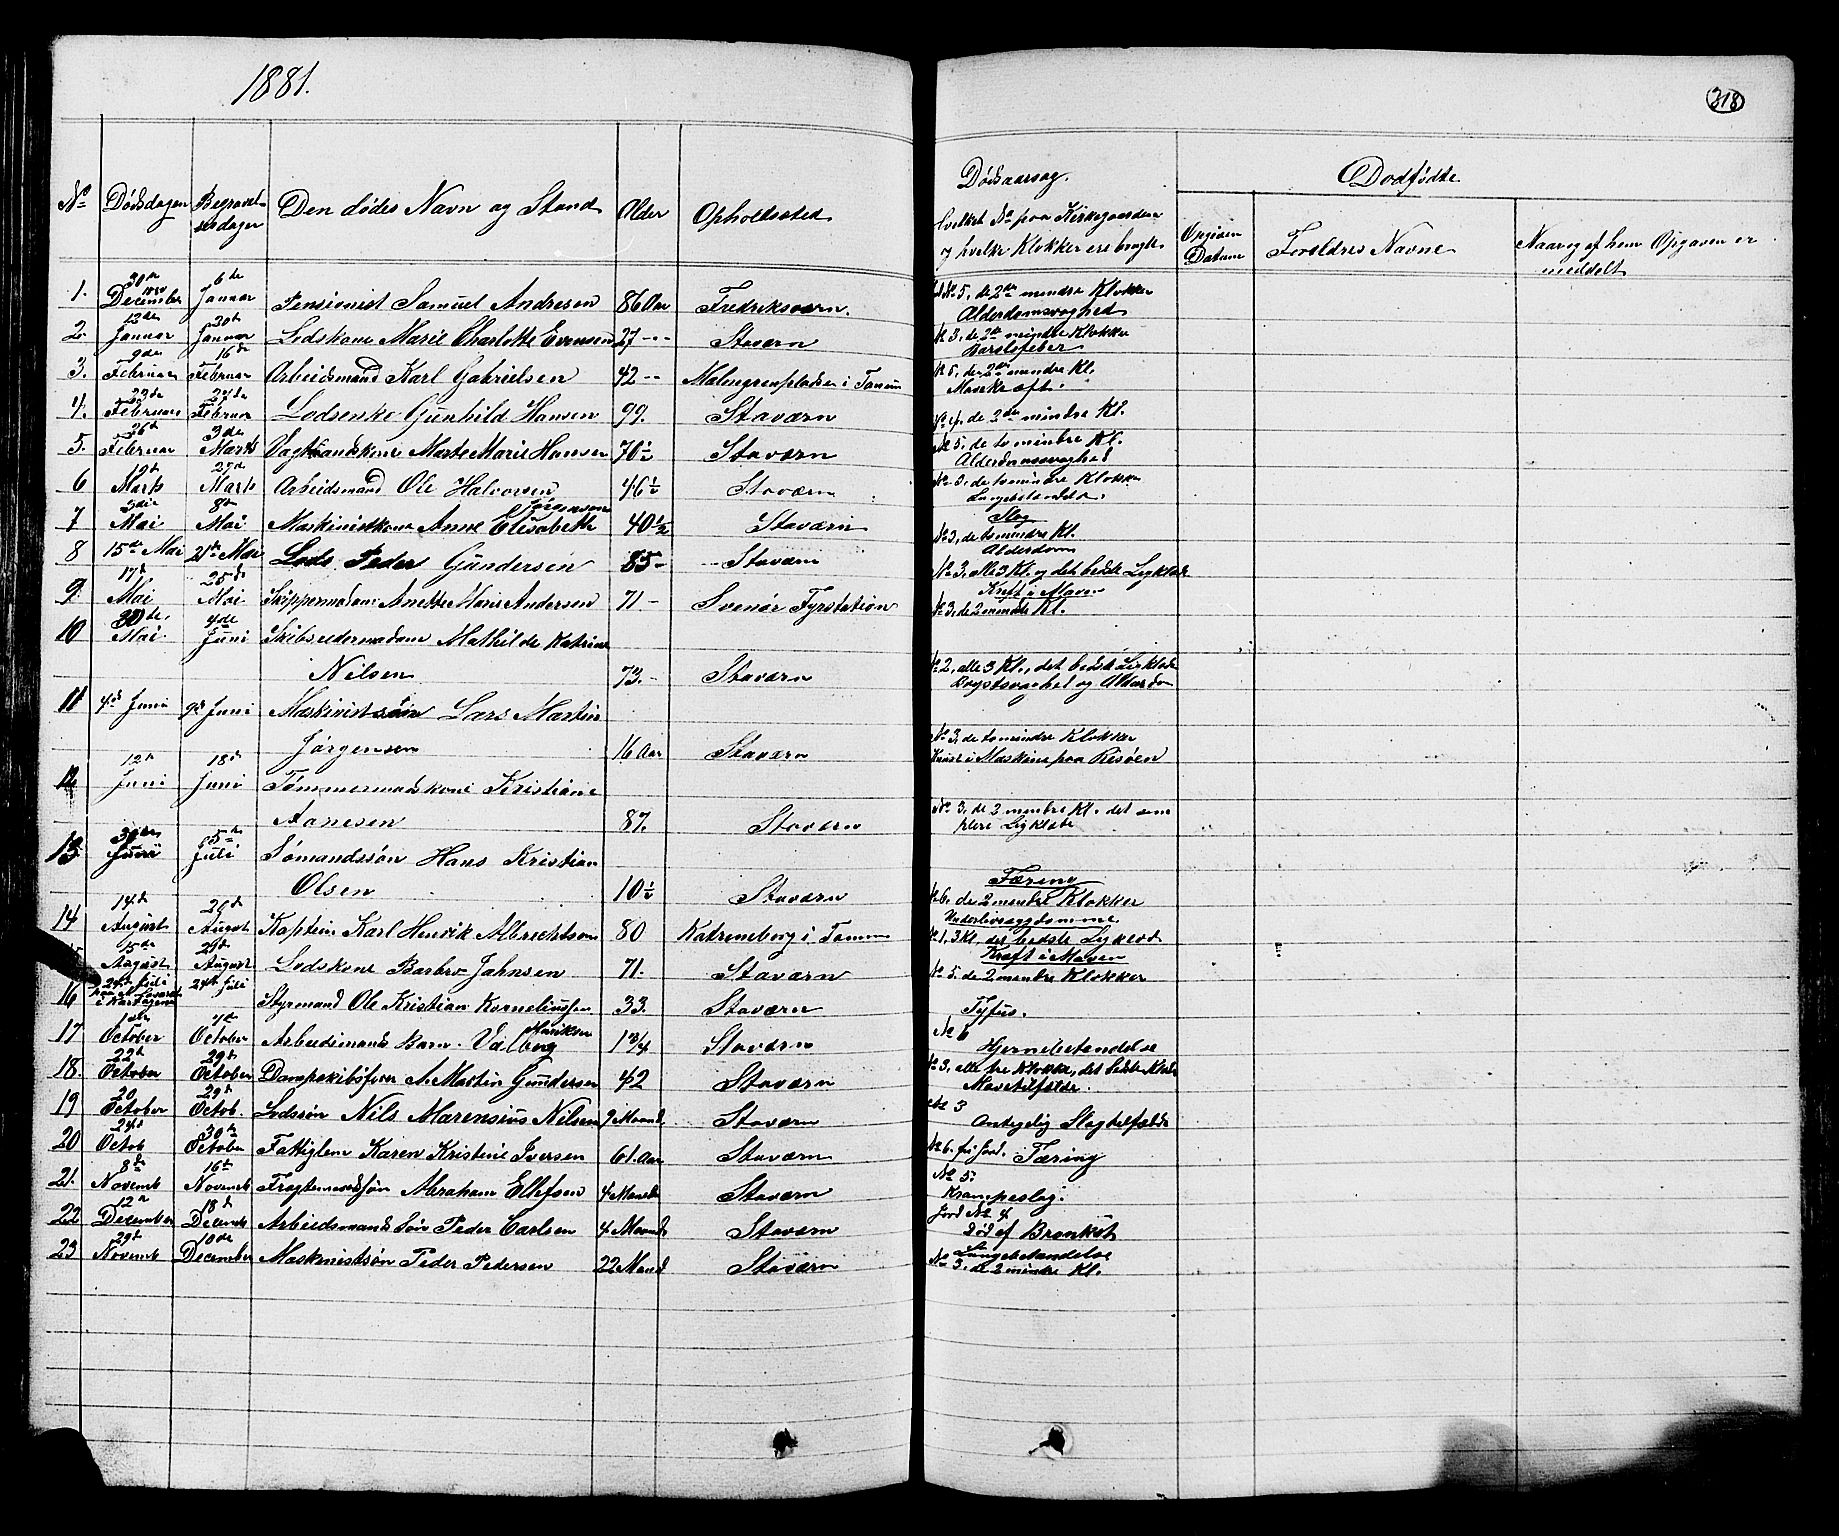 1881.
318
No Dødsdagen Begravelsesdagen Den dødes Navn og Stand Alder Opholdssted Dødsaarsag. Dødfødte
Hvilket No paa Kirkegaarden og hvilke Klokker ere brugte Opgiven Datum Foreldres Navne Naar og af hvem Opgaven er meddelt
1. 30te December 1880 6te Januar Pensionist Samuel Andresen 86 Aar Fredriksværn. No 5, de 2de mindre Klokker
Alderdomsvaghed
2. 12de Januar 20de Januar Lodskone Marie Charlotte Evensen 27 -- Staværn No 3, de 2de mindre Klokker
Barselfeber
3. 9de Februar 16de Februar Arbeidsmand Karl Gabrielsen 42 -- Malmgrenpladsen i Tanum No 5, de 2de mindre Kl.
4. 22de Februar 27de Februar Lodsenke Gunhild Hansen 99. Staværn No 4. de 2de mindre Kl.
5. 26de Februar 3de Marts Vagtmandskone Marte Marie Hansen 70½ Staværn No 5, de to mindre Kl.
Alderdomsvaghed
6 19de Marts 27de Marts Arbeidsmand Ole Halvorsen 46½ Staværn No 3, de to mindre Klokker
7 3die Mai 8de Mai Maskinistkone Anne Elisabeth Jørgensen 40½ Staværn Slag
No 3, de to mindre Kl.
8 15de Mai 21de Mai Lods Peder Gundersen 85 - Staværn Alderdom
No 3, alle 3 Kl. og det bedste Ligklæde
9. 17de Mai 25de Mai Skippermadam Anette Marie Andersen 71 - Svenør Fyrstation Kræft i Maven
No 3, de 2 mindre Kl.
10 30de Mai 4de Juni Skibsredermadam Mathilde Katrine
Nilsen 73. - Staværn No 2, alle 3 Kl., det bedste Ligklæde
Brystsvaghed og Alderdom
11 4de Juni 9de Juni Maskinistsøn Lars Martin
Jørgensen 16 Aar Staværn No 3, de to mindre Klokker
Knust i Maskine paa Risøen
12 12te Juni 18de Juni Tømmermandskone Kristiane
Aanesen 87. Staværn No 3, de 2 mindre Kl. det simplere Ligklæde
13 30te Juni 5te Juli Sømandssøn Hans Kristian
Olsen 10½ Staværn Tæring
No 6. de 2 mindre Klokker
14 14de August 20de August Kaptein Karl Henrik Albrechtson 80 Katrineborg i Tanum Underlivssygdomme
No 1, 3 Kl, det bedste Ligklæde
15 15de August 21de August Lodskone Barbro Jahnsen 71. Staværn Kræft i Maven
No 5. de 2 mindre Klokker
16 24de Juli 24de Juli Styrmand Ole Kristian Kornelinssen 33. Staværn Tyfus.
17 October October Arbeidsmands Barn Valborg Henriksen 1¾ Staværn No 6
Hjernebetændelse
18. 22de October 29de October Dampskibsfører A. Martin Gundersen 42 Staværn No 3, alle tre Klokker, det bedste Klæde
Mavetilfælde.
19 20 October 29de Octob. Lodssøn Nils Marensius Nilsen 9 Maaned Staværn No 3
Antagelig Slagtilfælde
20 24de Octob 30te October Fattiglem Karen Kristine Iversen 61. Aar Staværn No 6. fri Jord. Tæring
21. 8de Novemb 16de Novemb Fragtemandssøn Abraham Ellefsen 4 Maaneder Staværn No 5.
Krampeslag.
22 12te December 18de Decemb Arbeidsmands Søn Peder Carlsen 4 Maaned. Staværn Jord No 4
Død af Bronkit
23 29de Novemb 10de December Maskinistsøn Peder Pedersen 22 Maned Staværn Lungebetændelse
No 3. de 2 mindre Kl.